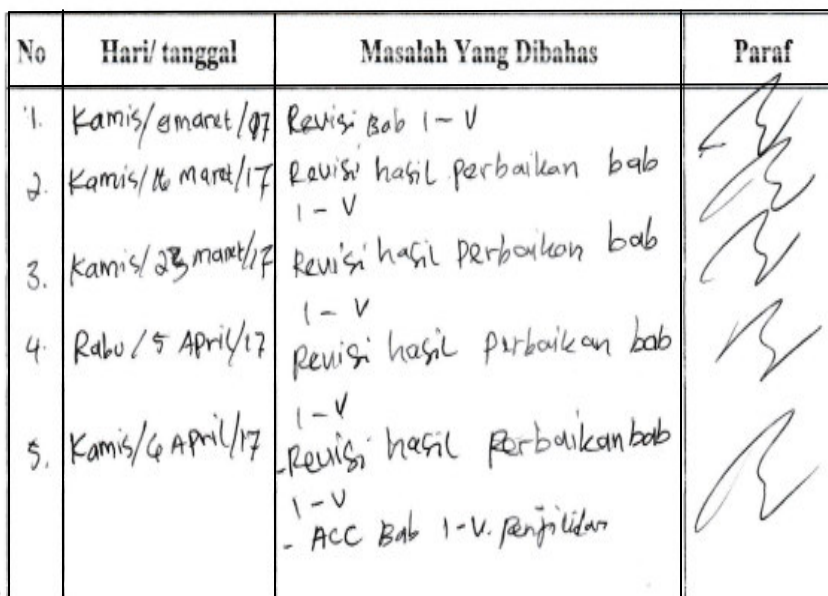 No Hari/ tanggal Masalah Yang Dibahas Paraf
1. Kamis/9 maret/17 Revisi Bab I - V
2. Kamis/16 maret/17 Revisi hasil perbaikan bab
I - V
3. Kamis/23 maret/17 Revisi hasil perbaikan bab
I - V
4. Rabu/5 April/17 Revisi hasil perbaikan bab
I - V
5. Kamis/6 April/17 -Revisi hasil perbaikan bab
I - V
- ACC Bab I-V. Penjilidan